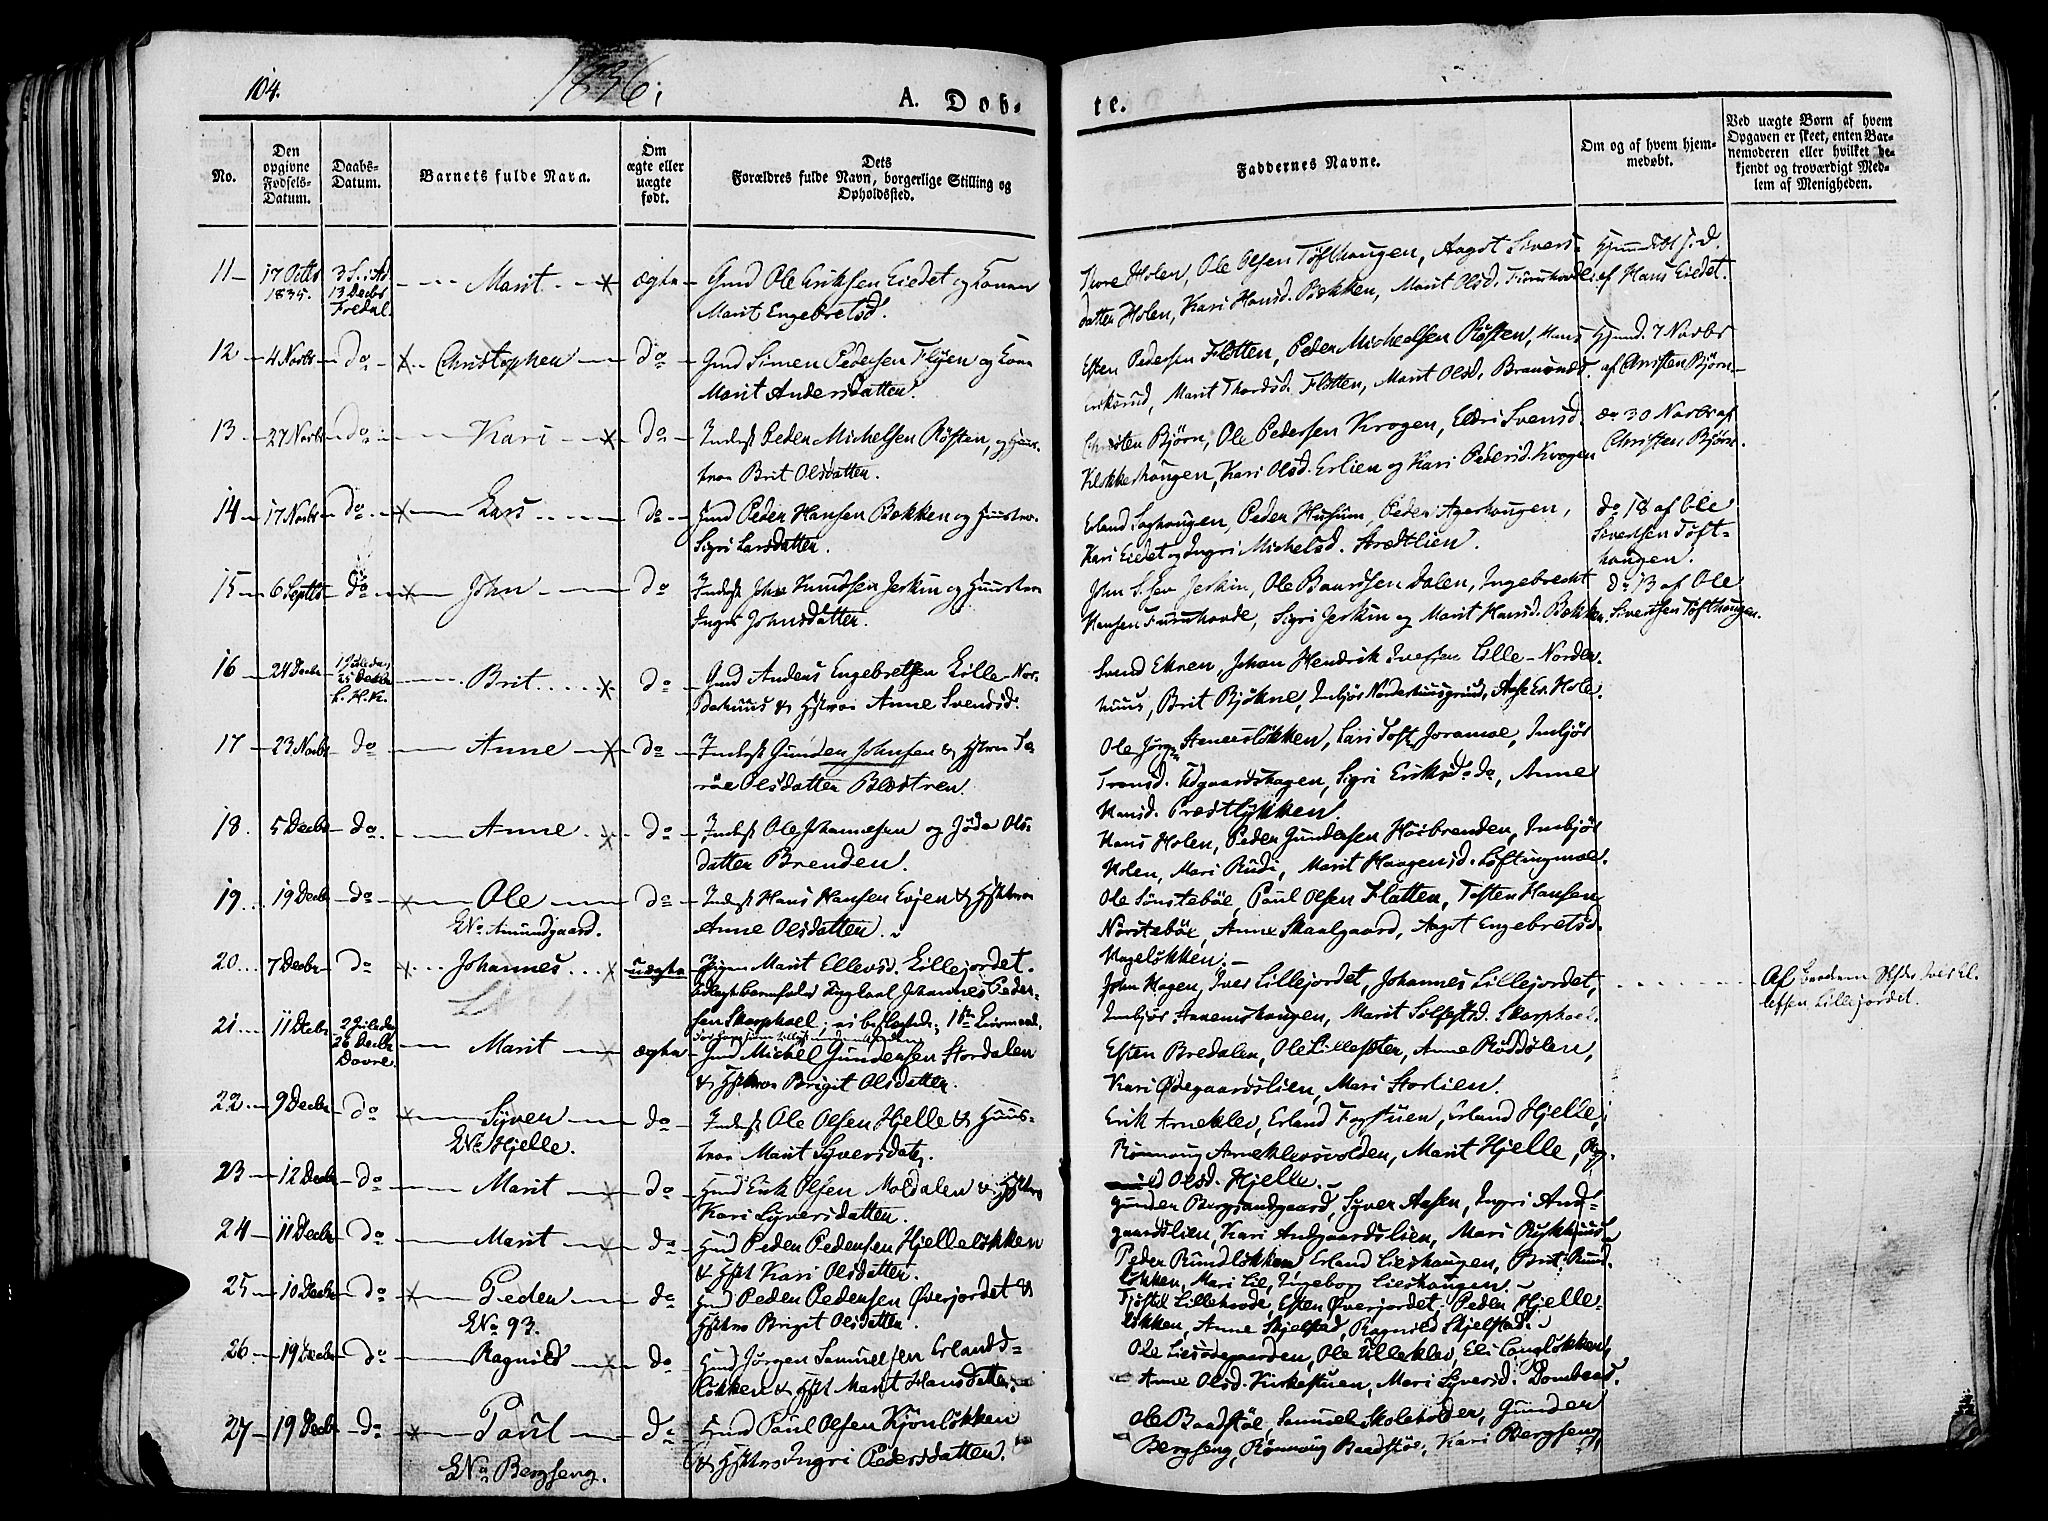 104.
1836.
A. Døb-
te.
No.
Den opgivne Fødsels-Datum.
Daabs-Datum.
Barnets fulde Navn.
Om ægte eller uægte født.
Dets Forældres fulde Navn, borgerlige Stilling og Opholdssted.
Faddernes Navne.
Om og af hvem hjem-medøbt.
Ved uægte Børn af hvem Opgaven er skeet, enten Bar-nemoderen eller hvilket be-kjendt og troværdigt Med-lem af Menigheden.
11 17 Octbr 1835. 13 Decbr Marit ægte Gmd Ole Eriksen Eiedet og Konen
Marit Engebretsd.
Tore Holen, Ole Olsen Tøfthaugen, Aagot Sivers-
datter Holen, Kari Hansd. Bækken, Marit Olsd. Furuhovde
af Hans Eiedet.
12 4 Novbr do Christopher do Gmd Simen Pedersen Flyen og Kone
Marit Andersdatter.
Esten Pedersen Flatten, Peder Michelsen Røsten, Hans
Eriksrud, Marit Thordsd. Flatten, Marit Olsd.
Hjemd. 7 Novbr
af Christen Bjørn
13 27 Novbr do Kari do Inderst Peder Michelsen Røsten, og Huus-
troe Brit Olsdatter.
Christen Bjørn, Ole Pedersen Krogen, Eldri Svensd.
Klokkerhaugen, Kari Olsd. Erlien og Kari Pedersd. Krogen
do 30 Novbr af
Christen Bjørn.
14 17 Novbr do Lars do Gmd Peder Hansen Bækken og Huustroe
Sigri Larsdatter.
Erland Saghaugen, Peder Husum, Peder Agerhaugen,
Kari Eiedet og Ingri Michelsd.
do 18 af Ole
Sivertsen Tøft-
haugen.
15 6 Septbr do John do Inderst John Knudsen Jerkin og Huustroe
Inger Johnsdatter.
John S. Jerkin, Ole Baardsen Dalen, Ingebrecht
Hansen Furuhovde, Sigri Jerkin og Marit Hansd. Bækken.
do 13 af Ole
Sivertsen Tøfthaugen.
16 24 Decbr Brit do Gmd Anders Engebretsen Lille-Nor-
derhuus & Hstroe Anne Svendsd.
Svend Ekren, Johan Hendrik Iversen Lille-Norder-
huus, Brit Bjøkne, Imbjør Norderhuusgrind,
17 23 Novbr do Anne do Inderst Gunder Johnsen & Hstroe
Olsdatter Blæstren.
Ole Jørg. Stenersløkken, Lars Toft Joramoe, Imbjør
Tronsd. Ødgaardshagen, Sigri Eriksd. do, Anne
Hansd. Præstlykken.
18 5 Decbr do Anne do Inderst Ole Johannesen og Jøda Ols-
datter Brenden.
Hans Holen, Peder Gundersen Høibrenden, Imbjør
Holen, Mari Rudi, Marit Haagensd. Løftingmoe.
19 19 Decbr do Ole do Inderst Hans Hansen Evjen & Hstroe
ENo Amundgaard. Anne Olsdatter.
Ole Sønstebøe, Paul Olsen Flatten, Tosten Hansen
Norstebøe, Anne Skaalgaard, Aagot Engebretsd.
Hageløkken.
20 7 Decbr do Johannes uægte Pigen Marit Ellevsd. Lillejordet.
Udlagt Barnefader Ungkarl Johannes Peder-
sen Skarphoel;
John Hagen, Iver Lillejordet, Johannes Lillejordet,
Imbjør Annemshaugen, Marit Solfestsd. Skarphoel.
Af Iver El-
lefsen Lillejordet.
21 11 Decbr 26 Decbr Dovre Marit ægte Gmd Michel Gundersen Stordalen
& Hstroe Brigit Olsdatter.
Esten Bredalen, Ole Lillesæter, Anne Røddølen,
Kari Ødegaardslien, Mari Storlien.
22 9 Decbr do Syver do Inderst Ole Olsen Hjelle & Huus-
ENo Hjelle. troe Marit Syversdatr.
Erik Arneklev, Erland Fogstuen, Erland Hjelle,
Rønnoug Arneklevsvolden, Marit Hjelle, Rag-
nild Olsd. Hjelle.
23 12 Decbr do Marit do Gmd Erik Olsen Moldalen & Hstroe
Kari Syversdatter.
Gunder Bergsandgaard, Syver Aasen, Ingri And-
gaardslien, Kari Andgaardslien, Mari
24 11 Decbr do Marit do Gmd Peder Pedersen Hjelleløkken
& Hst Kari Olsdatter.
Peder Rundløkken Erland Lieshaugen, Brit Rund-
løkken, Mari Lie, Ingebog Lieshaugen.
25 10 Decbr do Peder do Gmd Peder Pedersen Øverjordet &
ENo 93. Hstroe Brigit Olsdatter.
Tjøstel Lillehovde, Esten Øverjordet, Peder Hjelle-
løkken, Anne Skjelstad, Ragnild Skjelstad.
26 19 Decbr do Ragnild do Gmd Jørgen Samuelsen Erlands-
løkken & Hst Marit Hansdatter.
Ole Liesødegaarden, Ole Lilleklev, Eli Langløkken,
Anne Olsd. Kirkestuen, Mari Syversd. Dombaas.
27 19 Decbr do Paul do Gmd Paul Olsen Kjønløkken
ENo Bergseng. & Hstroe Ingri Pedersdatter.
Ole Baadstøe, Samuel Skoleholder, Gunder
Bergseng, Rønnoug Baadstøe, Kari Bergseng.